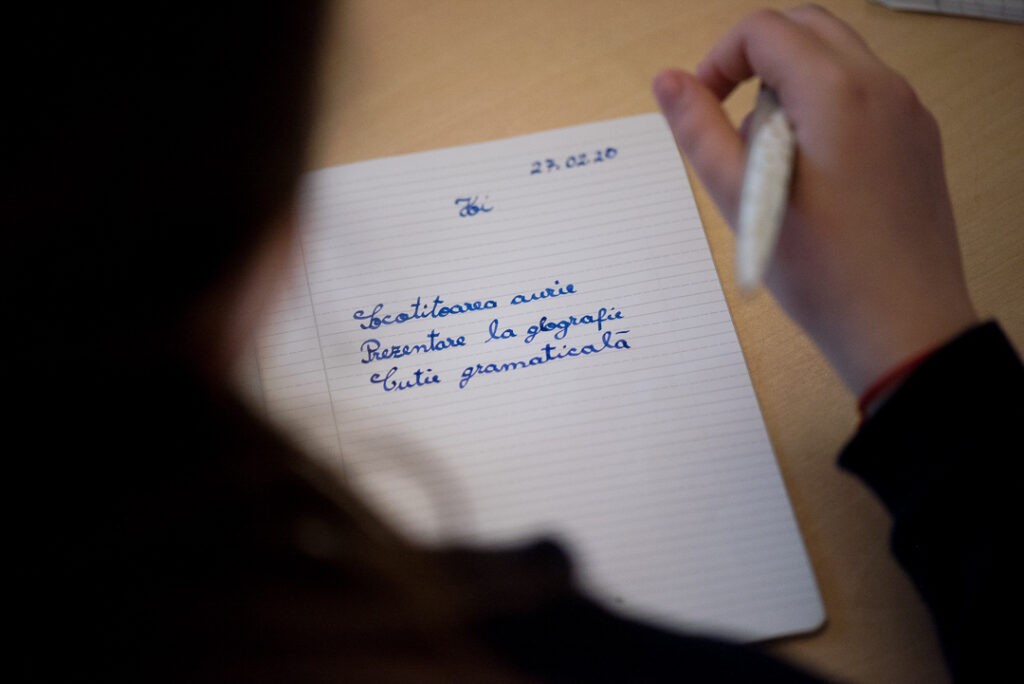 27.02.20
Joi
Socotitoarea aurie
Prezentare la geografie
Cutie gramaticală